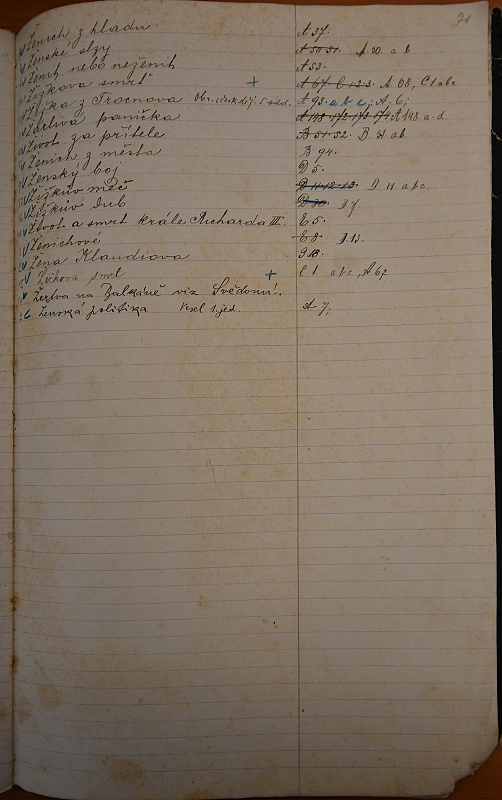 21
Ženich z hladu A 37.
Ženské slzy A 50 51. A 50 a b
Ženit nebo neženit A 53.
Žižkova smrt" + A 67. C 1 2 3. A 68, C 1 abc
Žižka z Trocnova Obr. z česk. děj. 5 jedn. A 93. a b c; A 6;
Žárlivá panička A 148 172 173 174 A 148 a-d
Život za přítele B 51. 52. B 51 ab.
Ženich z města B 94.
Ženský boj D 5.
Žižkův meč D 11 12 13. D 11 abc.
Žižkův dub D 7
Život a smrt krále Richarda III. E 5.
Ženichové E 8. D 13.
Žena Klaudiova
Žižkova smrt + C 1 abc, A 67
Žertva na Balkáně viz Svědomí.
Ženská politika Vesel. 1 jed. A 7;